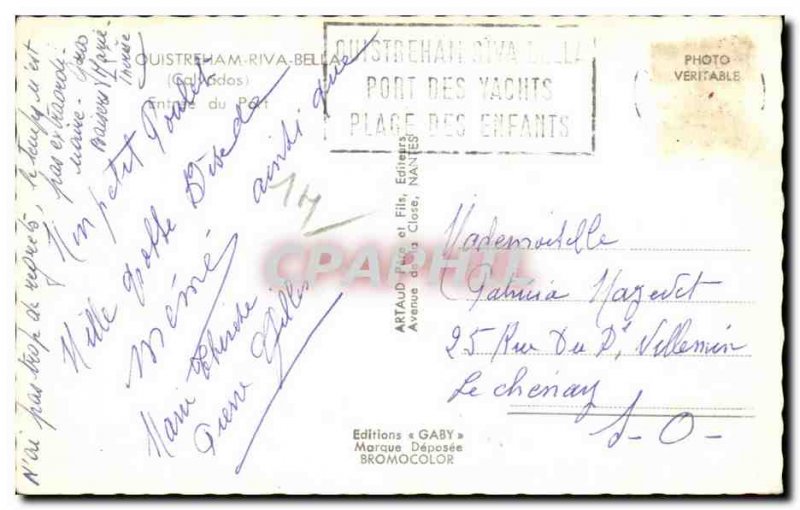 OUISTREHAM-RIVA-BELLA
(Calvados)
Entrée du Port
OUISTREHAM RIVA BELLA
PORT DES YACHTS
PLAGE DES ENFANTS
PHOTO
VERITABLE
Mon petit Poulet
Mille grosse Bise de
Mémé ainsi que
Marie Thérèse
Pierre Gilles
14
N'ai pas trop de regrets, le temps n'est
pas extraordi-
naire.
Baisers Marie-
Thérèse
ARTAUD Père et Fils, Editeurs
Avenue de la Close, NANTES
CPAPHIL
Mademoiselle
Patricia
25 Rue Du Dr Villemin
Le Chesnay
S-O-
Editions « GABY »
Marque Déposée
BROMOCOLOR